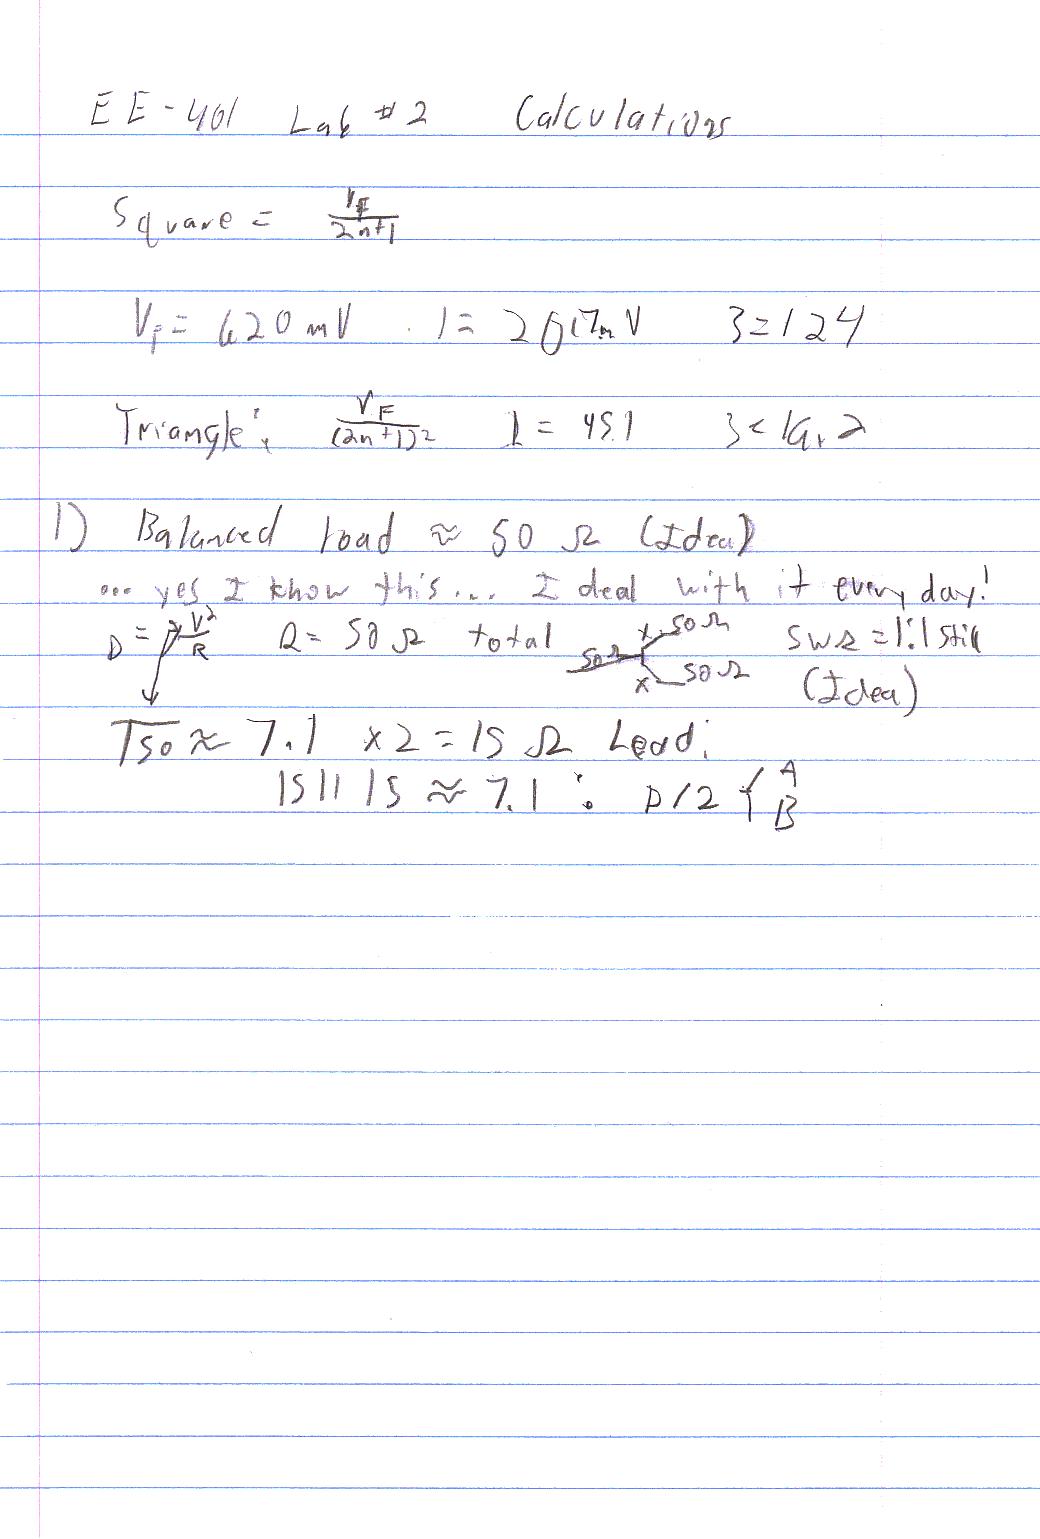 EE-401 Lab #2 Calculations
Square = V_F / 2n+1
V_F = 620 mV 1= 207 mV 3=124
Triangle: V_F / (2n+1)² 1 = 45.1 3 =
1) Balanced load ≈ 50 Ω (Ideal)
... yes I know this... I deal with it every day!
P = V²/R R= 50 Ω total 50Ω x 50Ω x 50Ω SWR = 1:1 still
(Ideal)
√50 ≈ 7.1 x2 = 15 Ω Lead:
15||15 ≈ 7.1 ∴ P/2 { A
B